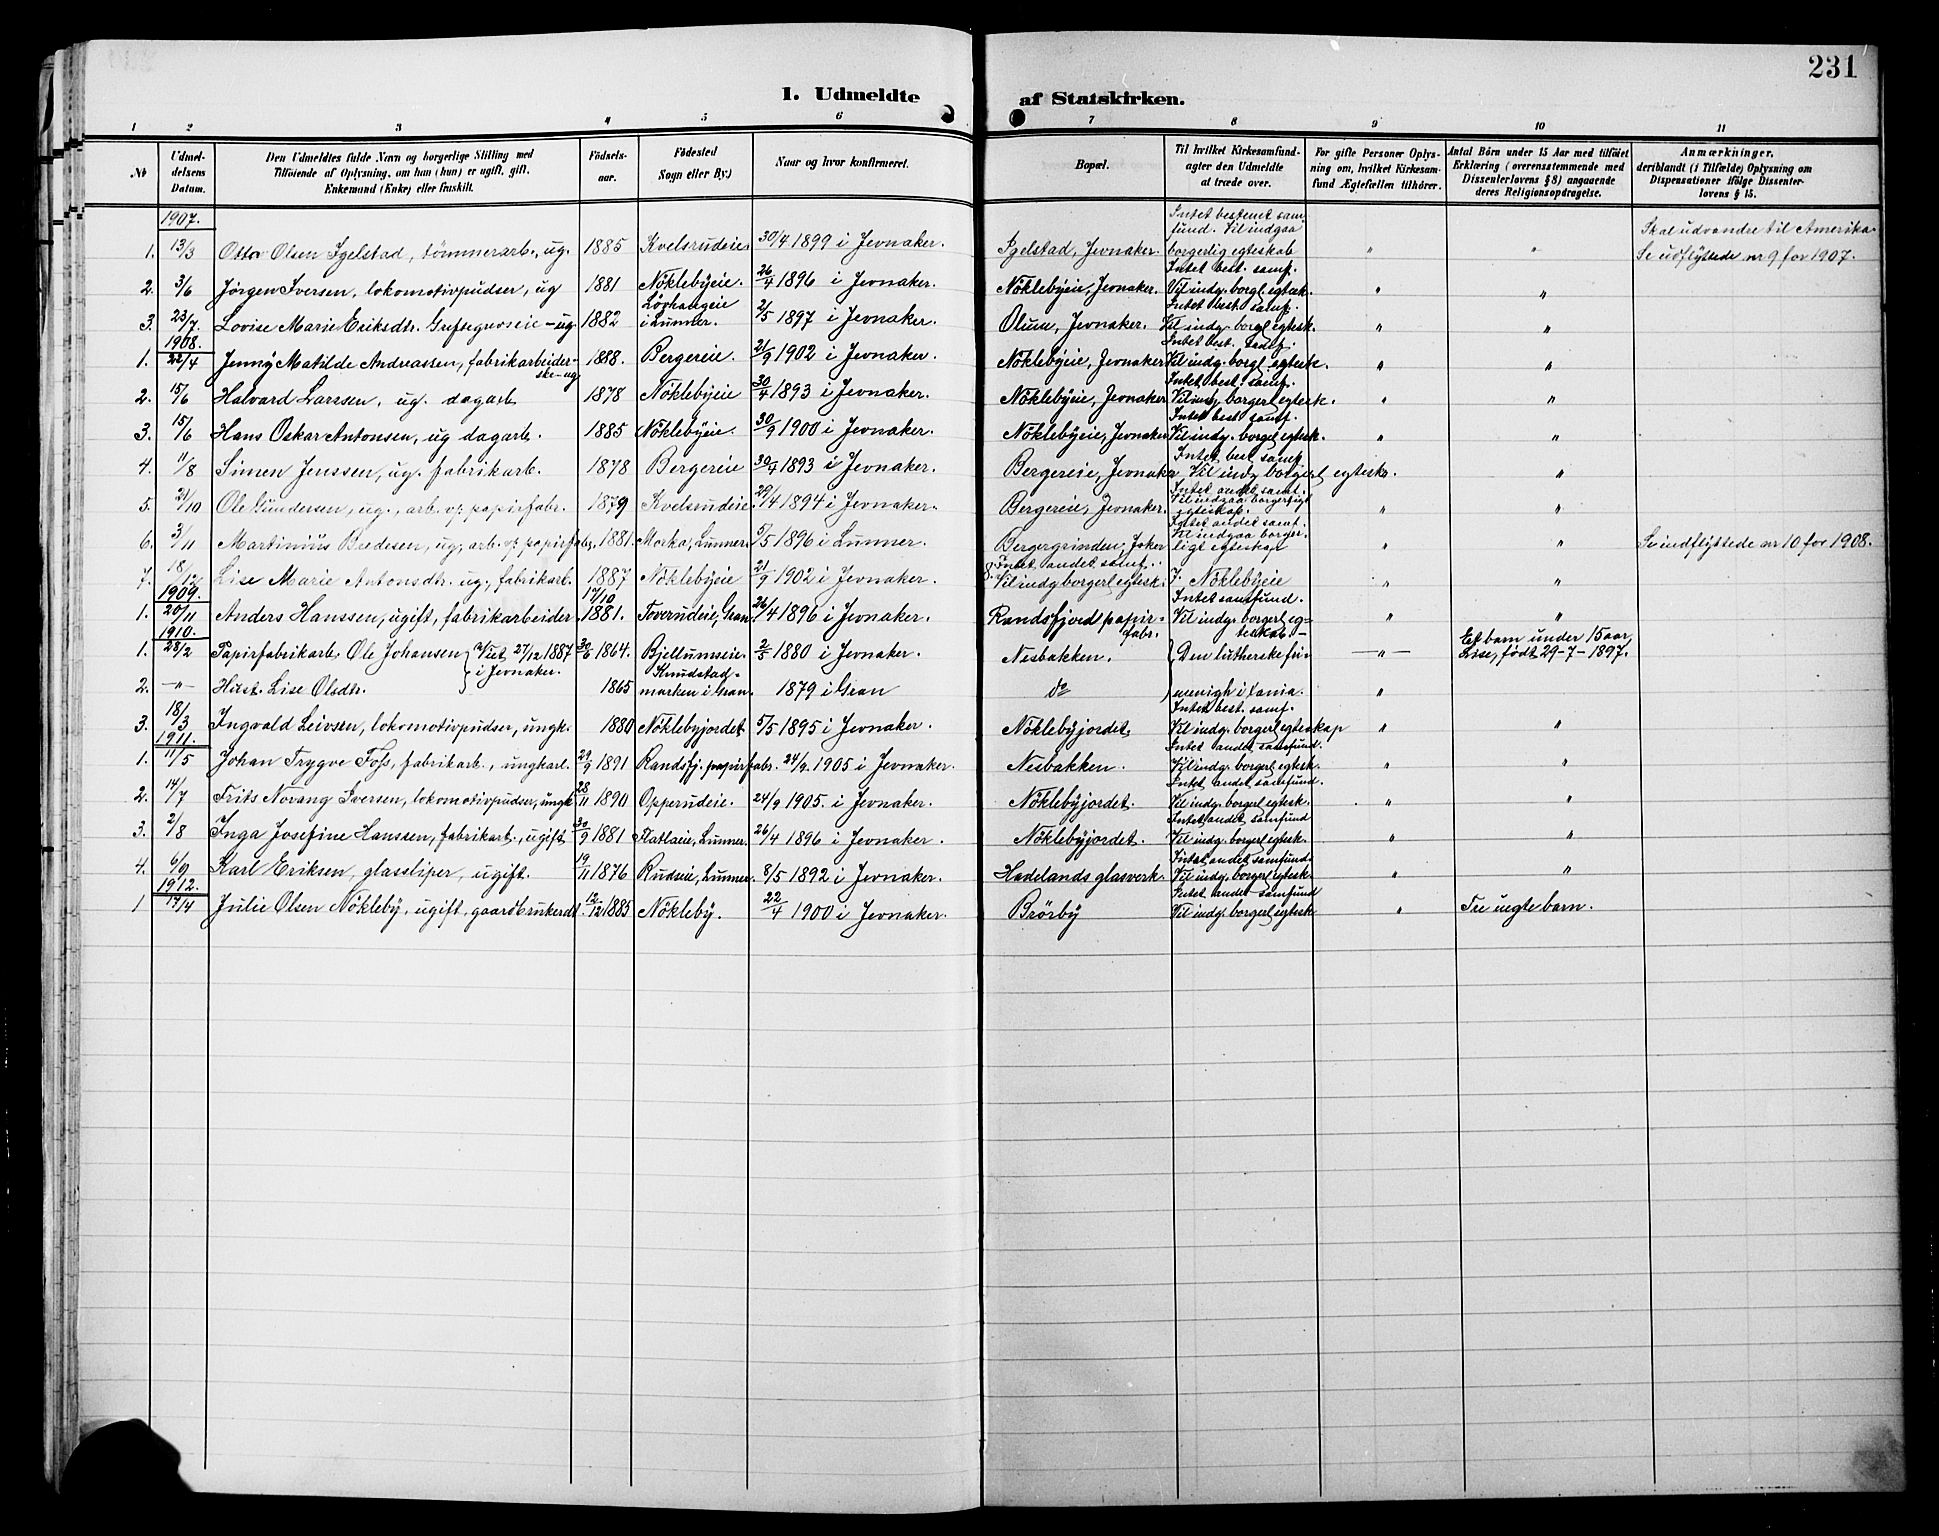 231
I. Udmeldte af Statskirken.
1 2 3 4 5 6 7 8 9 10 11
No
Udmel-
delsens
Datum.
Den Udmeldtes fulde Navn og borgerlige Stilling med
Tilföiende af Oplysning, om han (hun) er ugift, gift,
Enkemand (Enke) eller fraskilt.
Födsels-
aar.
Födested
Sogn eller By.)
Naar og hvor konfirmeret.
Bopæl.
Til hvilket Kirkesamfund-
agter den Udmeldte
at træde over.
For gifte Personer Oplys-
ning om, hvilket Kirkesam-
fund Ægtefællen tilhörer.
Antal Börn under 15 Aar med tilföiet
Erklæring (overensstemmende med
Dissenterlovens § 8) angaaende
deres Religionsopdragelse.
Anmærkninger,
deriblandt (i Tilfælde) Oplysning om
Dispensationer ifölge Dissenter-
lovens § 15.
1907.
1. 13/3 Otto Olsen Igelstad, tömmerarb., ug. 1885 Kvelsrudeie 30/4 1899 i Jevnaker. Igelstad, Jevnaker. Intet bestemt sam-
fund. Vil indgaa
borgerlig egteskab " " Skal udvandre til Amerika.
Se udflyttede nr 9 for 1907.
2. 3/6 Jörgen Iversen, lokomotivpudser, ug 1881 Nöklebyeie. 26/4 1896 i Jevnaker. Nöklebyeie, Jevnaker. Intet best. samf.
Vil indg. borgl. egtesk. " "
3. 23/7 Lovise Marie Eriksdtr. Grefsegrenseie - ug. 1882 Lövhaugeie
i Lunner. 2/5 1897 i Jevnaker. Olum, Jevnaker. Intet best. samf.
Vil indg. borgl. egtesk. " "
1908.
1. 22/4 Jenny Matilde Andreassen, fabrikarbeider-
ske - ug 1888. Bergereie. 21/9 1902 i Jevnaker. Nöklebyeie, Jevnaker Intet best. samf.
Vil indg. borgl. egtesk. " "
2. 15/6 Halvard Larssen, ug. dagarb 1878 Nöklebyeie 30/4 1893 i Jevnaker. Nöklebyeie, Jevnaker Intet best. samf.
Vil indg. borgerl egtesk. " "
3. 15/6 Hans Oskar Antonsen, ug dagarb. 1885 Nöklebyeie. 30/9 1900 i Jevnaker. Nöklebyeie, Jevnaker Intet best samf.
Vil indg. borgerl egtesk. " "
4. 11/8 Simen Jenssen, ug. fabrikarb. 1878 Bergereie 30/4 1893 i Jevnaker. Bergereie, Jevnaker Intet best samf.
Vil indg borgerl egtesk. "
5. 21/10 Ole Gundersen, ug., arb. v. papirfabr. 1879 Kvelsrudeie. 29/4 1894 i Jevnaker. Bergereie, Jevnaker. Intet andet samf.
Vil indgaa borgerligt
egteskap. " "
6. 3/11 Martinius Bredesen, ug, arb. v. papirfabr. 1881. Morka, Lunner. 5/5 1896 i Lunner. Bergergrinden, Joker Intet andet samf.
Vil indgaa borger-
ligt egteskap " " Se indflyttede nr 10 for 1908.
7. 18/12 Lise Marie Antonsdtr. ug., fabrikarb. 1887 Nöklebyeie 21/9 1902 i Jevnaker. 8. Intet andet samf.
Vil indg borgerl egtesk. 7. Nöklebyeie " "
1909.
1. 20/11 Anders Hanssen, ugift, fabrikarbeider 17/10 1881. Toverudeie, Gran. 26/4 1896 i Jevnaker. Randsfjord papir-
fabr. Intet samfund.
Vil indg. borgerl eg-
teskab - " "
1910.
1. 28/2 Papirfabrikarb. Ole Johansen } Viet 27/12 1887
i Jevnaker. 30/6 1864. Bjellumseie. 2/5 1880 i Jevnaker. Nesbakken. } Den lutherske fri- — " — Et barn under 15 aar,
Lise, födt 29-7-1897.
2. — " — Hust. Lise Olsdtr. 1865 Knudstad-
marken i Gran. 1879 i Gran do menigh i Xania. "
3. 18/3 Ingvald Leivsen, lokomotivpudser, ungk. 1880 Nöklebyjordet 5/5 1895 i Jevnaker. Nöklebyjordet. Intet best. samf.
Vil indg. borgerl egteskap " "
1911.
1. 11/5 Johan Trygve Foss, fabrikarb., ungkarl. 29/9 1891 Randsfj. papirfabr. 24/9 1905 i Jevnaker. Nesbakken. Intet andet samfund.
Vil indg. borgerl egtesk. " "
2. 14/7 Frits Novang Iversen, lokomotivpudser, ungk 28/11 1890 Opperudeie. 24/9 1905. i Jevnaker. Nöklebyjordet. Intet andet samfund.
Vil indg. borgerl egtesk. " "
3. 2/8 Inga Josefine Hanssen, fabrikarb., ugift 30/9 1881 Flatlaeie, Lunner. 26/4 1896 i Jevnaker. Nöklebyjordet. Intet andet samfund
Vil indg. borgerl egtesk. " "
4. 6/9 Karl Eriksen, glassliper, ugift. 19/11 1876 Rudseie, Lunner. 8/5 1892 i Jevnaker. Hadelands glasverk. Intet andet samfund.
Vil indg. borgerl egtesk. " "
1912.
1 17/4 Julie Olsen Nökleby, ugift, gaardbrukerdt. 12/12 1885 Nökleby. 22/4 1900 i Jevnaker. Brörby Intet andet samfund
Vil indg. borgerl egtesk " Tre uegte barn.